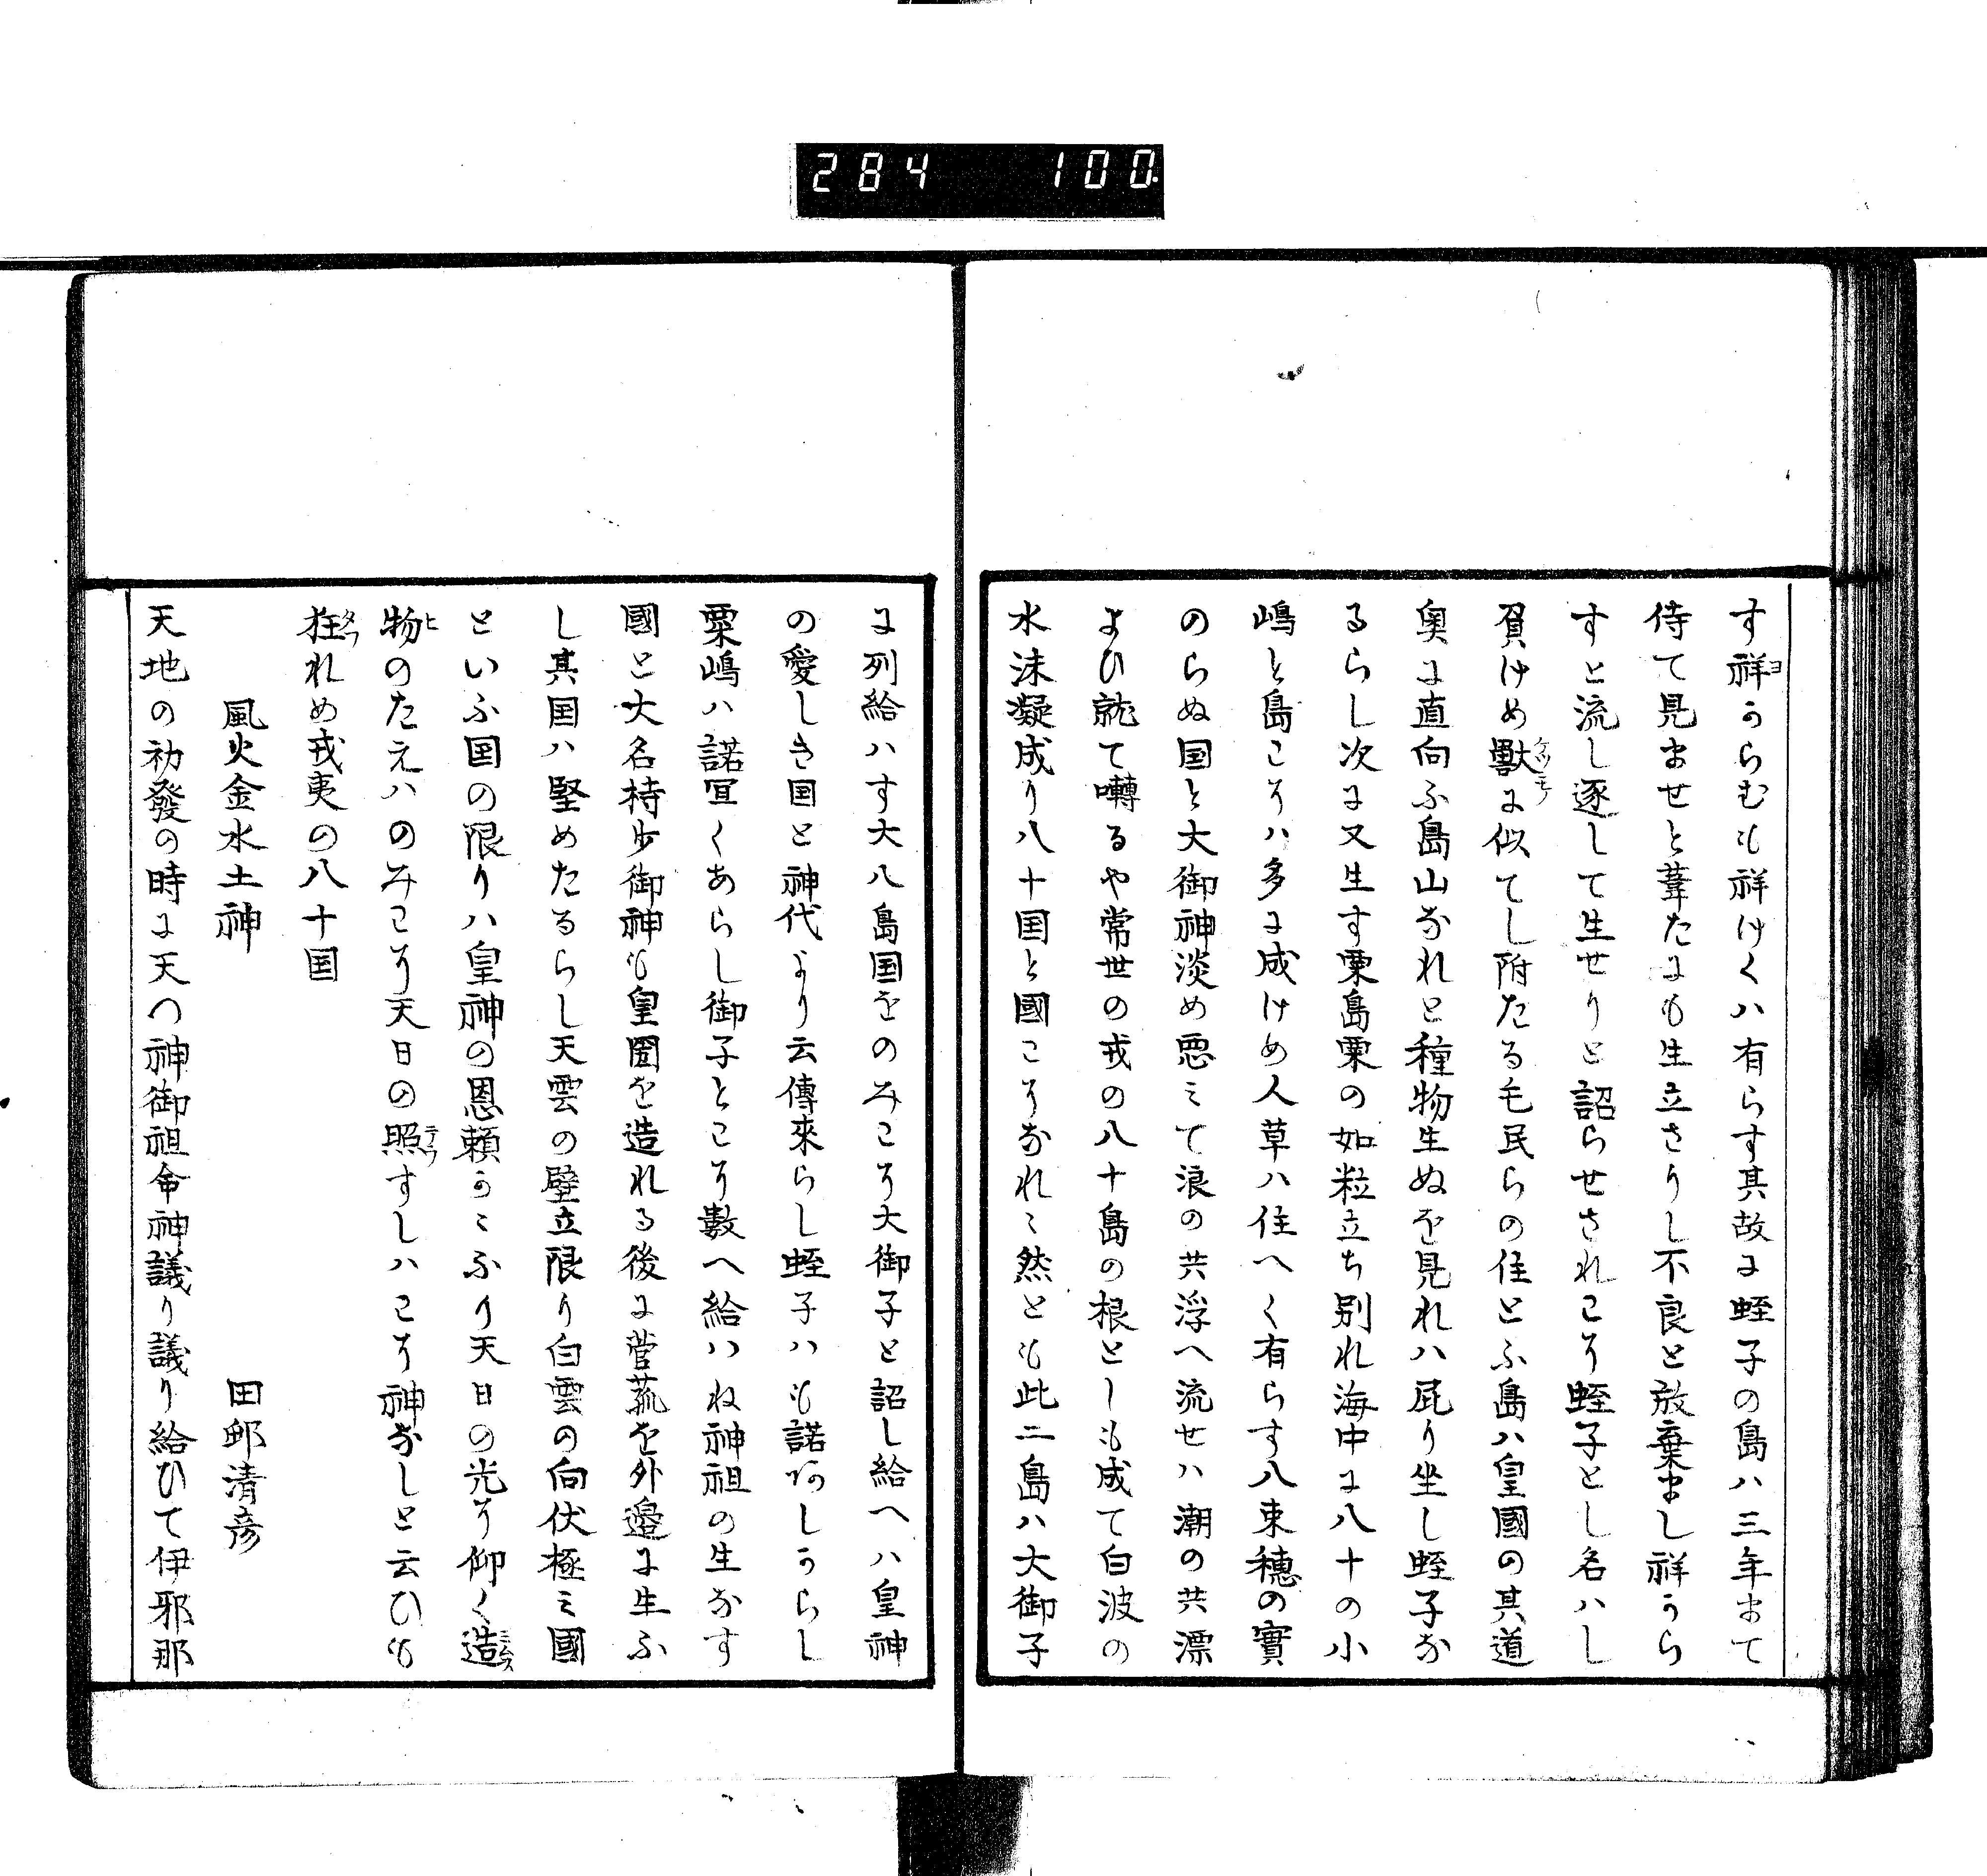 284 100
す祥からむも祥けくハ有らす其故に蛭子の島ハ三年まて
侍て見ませと葦たにも生立さりし不良と放棄まし祥から
すと流し逐して生せりと詔らせされこそ蛭子とし名ハし
負けめ獣に似てし附たる毛民らの住とふ島ハ皇國の其道
奥に直向ふ島山なれと種物生ぬを見れハ屁り坐し蛭子な
るらし次に又生す粟島粟の如粒立ち別れ海中に八十の小
嶋と島こそハ多に成けめ人草ハ住へく有らす八束穂の實
のらぬ国と大御神淡め悪ミて浪の共浮へ流せハ潮の共漂
よひ就て囀るや常世の戎の八十島の根としも成て白波の
水沫凝成り八十国と國こそなれゝ然とも此二島ハ大御子
に列給ハす大八島国をのみこそ大御子と詔し給へハ皇神
の愛しき国と神代より云傳來らし蛭子ハも諾しからし
粟嶋ハ諾冝くあらし御子とこそ數へ給ハね神祖の生なす
國と大名持少御神も皇圀を造れる後に菅菰を外邊に生ふ
し其国ハ堅めたるらし天雲の壁立限り白雲の向伏極ミ國
といふ国の限りハ皇神の恩頼かゝふり天日の光そ仰く造
物のたえハのみこそ天日の照すしハこそ神なしと云ひも
狂れめ戎夷の八十国
風火金水土神 田邨清彦
天地の初發の時に天つ神御祖命神議り議り給ひて伊邪那